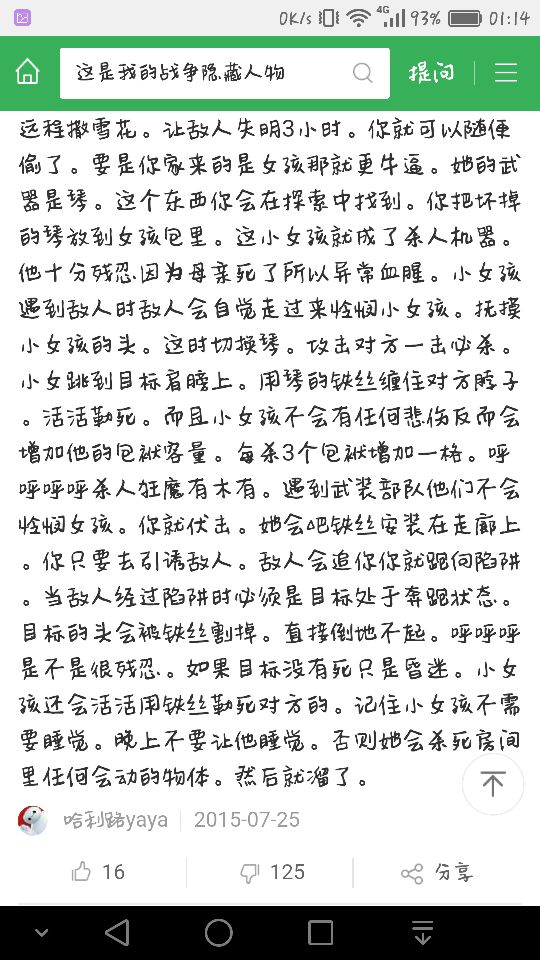 0K/s 4G 93% 01:14
这是我的战争隐藏人物 提问
远程撒雪花。让敌人失明3小时。你就可以随便
偷了。要是你家来的是女孩那就更牛逼。她的武
器是琴。这个东西你会在探索中找到。你把坏掉
的琴放到女孩包里。这小女孩就成了杀人机器。
他十分残忍因为母亲死了所以异常血腥。小女孩
遇到敌人时敌人会自觉走过来怜悯小女孩。抚摸
小女孩的头。这时切换琴。攻击对方一击必杀。
小女跳到目标肩膀上。用琴的铁丝缠住对方脖子
。活活勒死。而且小女孩不会有任何悲伤反而会
增加他的包袱容量。每杀3个包袱增加一格。呼
呼呼呼杀人狂魔有木有。遇到武装部队他们不会
怜悯女孩。你就伏击。她会吧铁丝安装在走廊上
。你只要去引诱敌人。敌人会追你你就跑向陷阱
。当敌人经过陷阱时必须是目标处于奔跑状态。
目标的头会被铁丝割掉。直接倒地不起。呼呼呼
是不是很残忍。如果目标没有死只是昏迷。小女
孩还会活活用铁丝勒死对方的。记住小女孩不需
要睡觉。晚上不要让他睡觉。否则她会杀死房间
里任何会动的物体。然后就溜了。
哈利路yaya 2015-07-25
16 125 分享